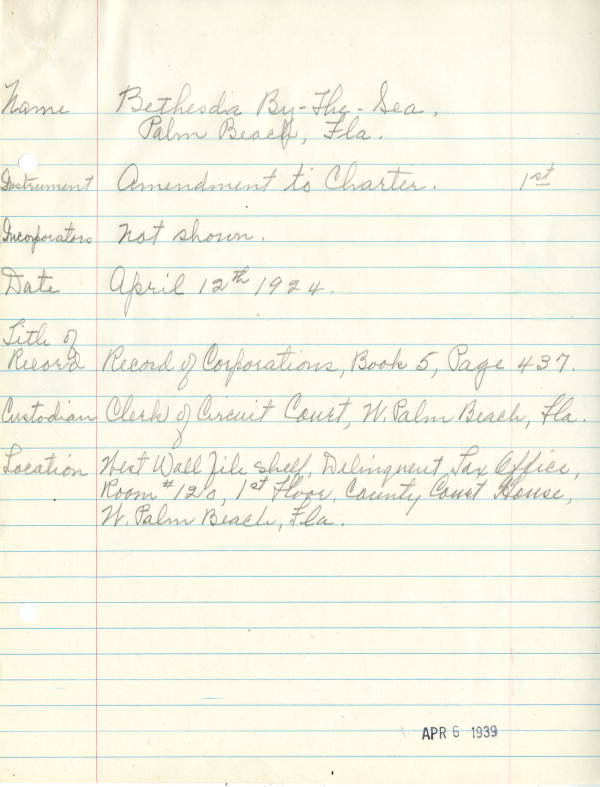 Name Bethesda By-The-Sea,
Palm Beach, Fla.
Instrument Amendment to Charter. 1st
Incorporators Not shown.
Date April 12th 1924.
Title of
Record Record of Corporations, Book 5, Page 437.
Custodian Clerk of Circuit Court, W. Palm Beach, Fla.
Location West Wall File Shelf, Delinquent, Tax Office,
Room #120, 1st Floor, County Court House,
W. Palm Beach, Fla.
APR 6 1939